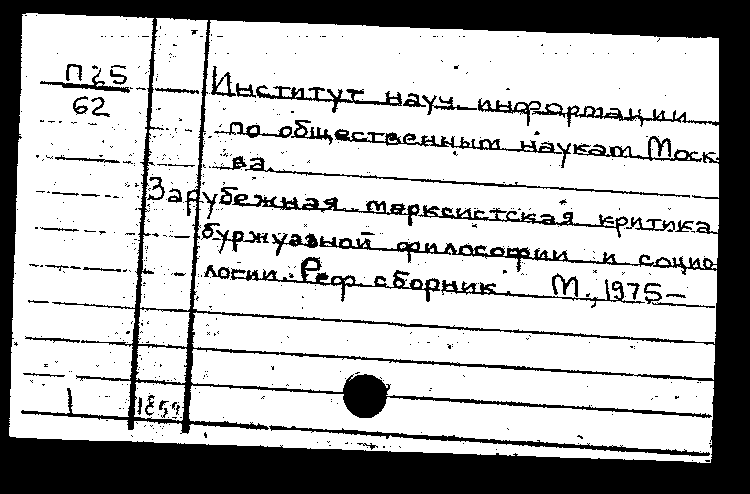 П25
62
Институт науч. информации
по общественным наукам. Моск-
ва.
Зарубежная марксистская критика
буржуазной философии и социо
логии. Реф. сборник. М., 1975—
1 1859